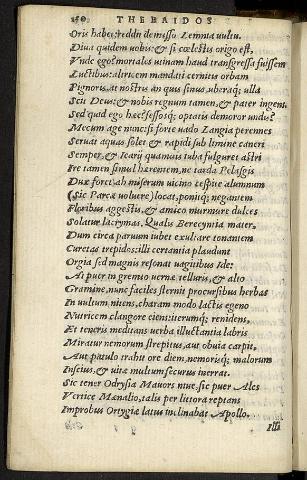 150 THEBAIDOS
Oris habet: reddit demisso Lemnia uultu.
Diua quidem uobis: & si cœlestis origo est,
Vnde ego? mortales utinam haud transgressa fuissem
Luctibus: altricem mandati cernitis orbam
Pignoris. at nostris in quis sinus, uberaq; ulla
Scit Deus: & nobis regnum tamen, & pater ingens.
Sed quid ego hæc? fessosq; optatis demoror undis?
Mecum age nunc: si forte uado Langia perennes
Seruat aquas solet & rapidi sub limine cancri
Semper, & Icarij quamuis iuba fulguret astri
Ire tamen. simul hærentem, ne tarda Pelasgis
Dux foret: ah miserum uicino cespite alumnum
(Sic Parcæ uoluere) locat, poniq; negantem
Floribus aggestis, & amico murmure dulces
Solatur lacrymas. Qualis Berecynia mater,
Dum circa paruum iubet exultare tonantem
Curetas trepidos: illi certantia plaudunt
Orgia sed magnis resonat uagitibus Ide:
At puer in gremio uernæ telluris, & alto
Gramine, nunc faciles sternit procursibus herbas
In uultum nitens, charam modo lactis egeno
Nutricem clangore ciens: iterumq; renidens,
Et teneris meditans uerba illuctantia labris
Miratur nemorum strepitus, aut obuia carpit.
Aut patulo trahit ore diem, nemorisq; malorum
Inscius, & uitæ multum securus inerrat.
Sic tener Odrysia Mauors niue, sic puer Ales
Vertice Mænalio, talis per littora reptans
Improbus Ortygiæ latus inclinabat Apollo.
Illi